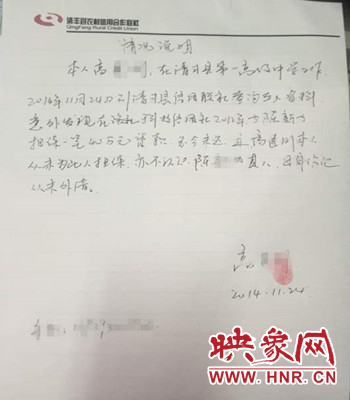 清丰县农村信用合作联社
QingFeng Rural Credit Union
情况说明
本人高 在清丰县第一高级中学工作
2014年11月24日到清丰县信用联社查询个人资料
意外发现在 信用社2012年为陈
担保一笔40万元贷款 至今未还 且高 本人
从未为此人担保. 亦不认识陈 其人, 且身份证
从未外借.
高
2014.11.24
映象网
WWW.HNR.CN